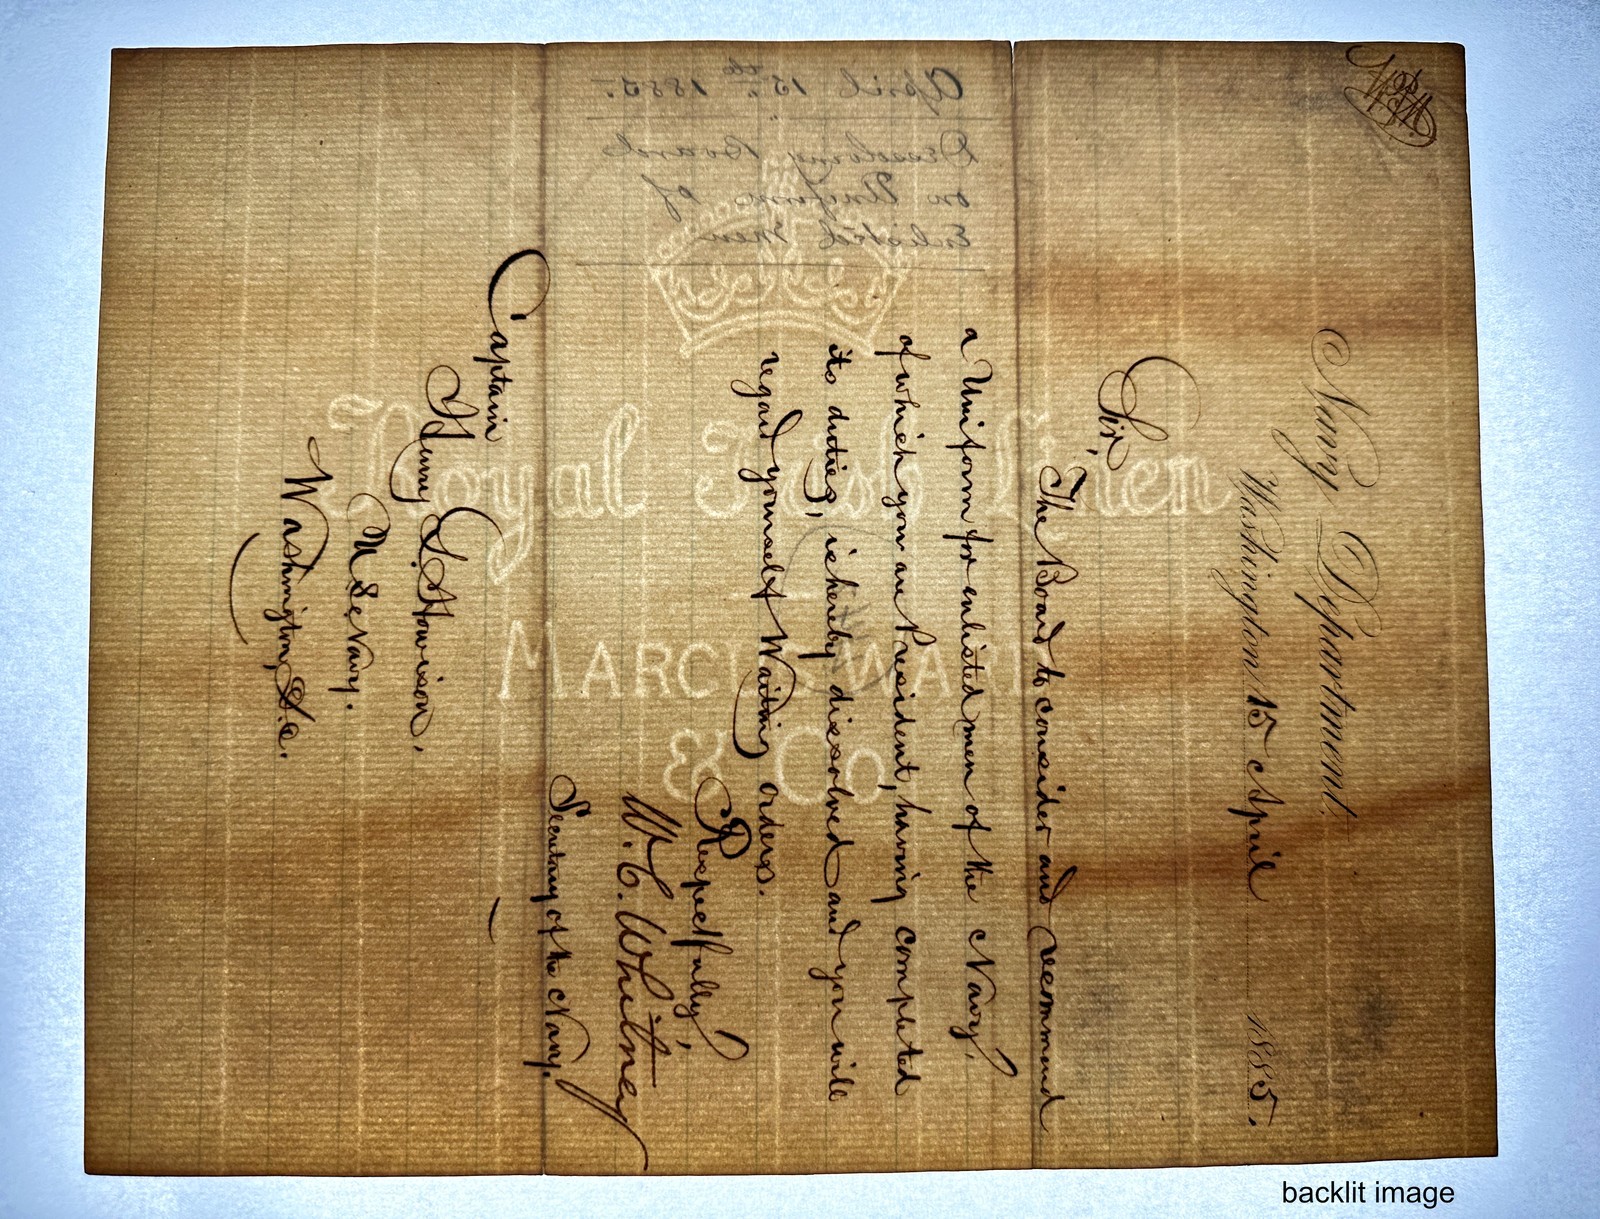 Navy Department.
Washington, 15 April 1885.
Sir,
The Board to consider and recommend
a Uniform for enlisted men of the Navy,
of which you are President, having completed
its duties, is hereby dissolved and you will
regard yourself Waiting orders.
Respectfully,
W. C. Whitney
Secretary of the Navy.
Captain
Henry L. Howison,
U. S. Navy.
Washington, D.C.
April 15th 1885.
Dissolving Board
on Uniform of
Enlisted men
Royal Irish Linen
MARCUS WARD
& Co
backlit image